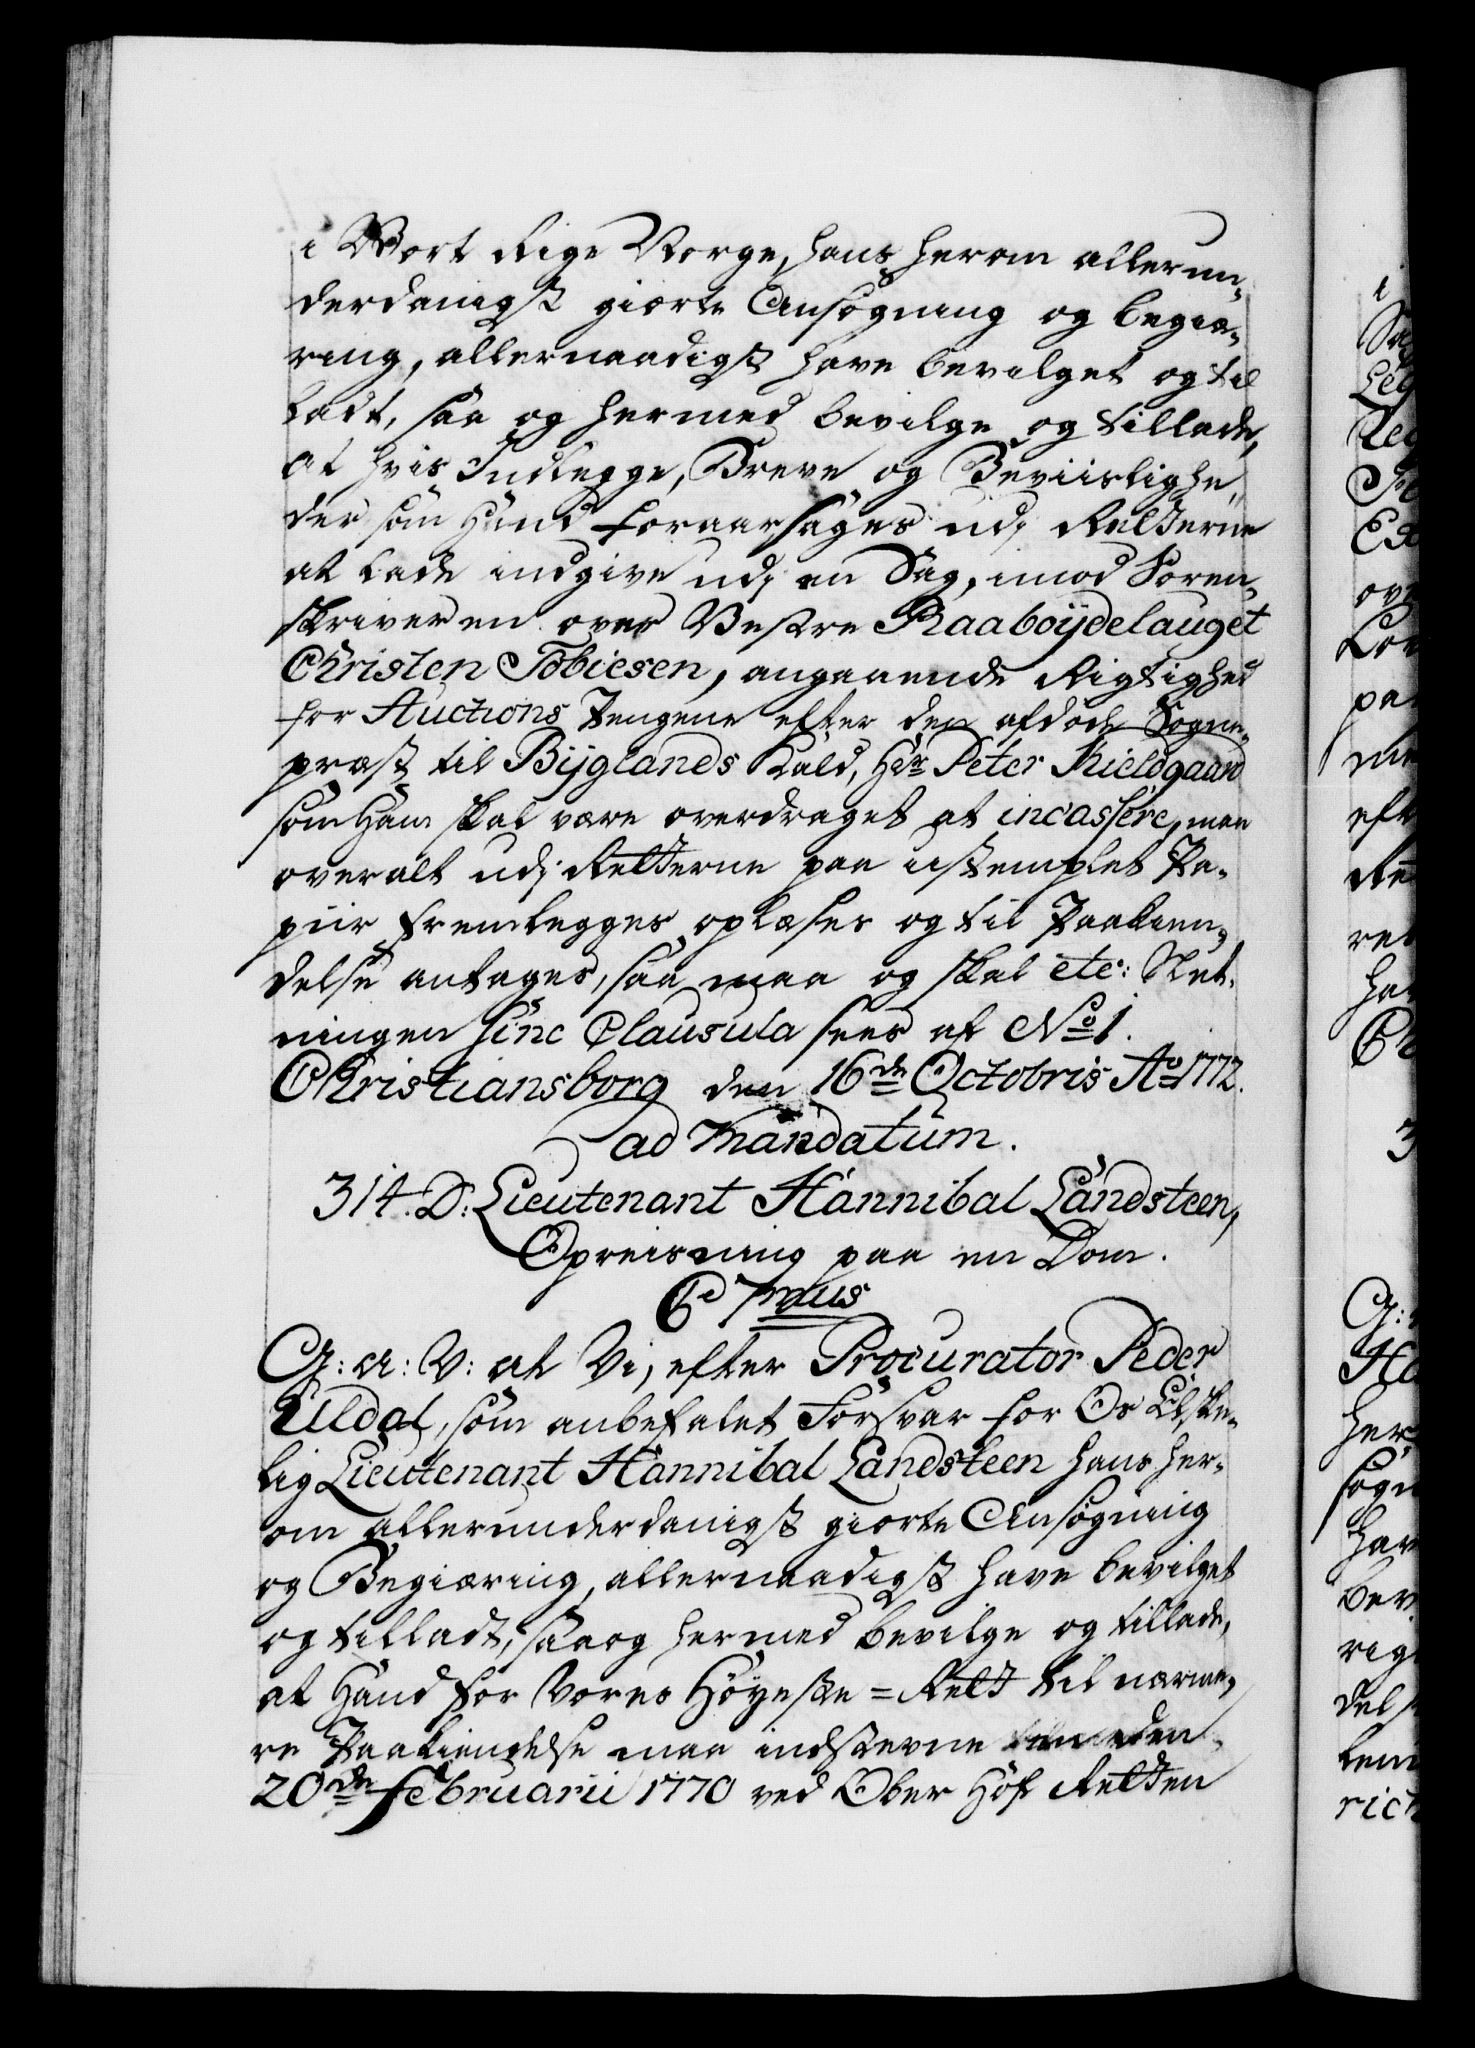 i Vort Rige Norge, hans herom allerun-
derdanigst giorte Ansøgning og begiæ-
ring, allernaadigst have bevilget og til
ladt, saa og hermed bevilge og tillade,
at hvis Indlegge, Breve og Beviislighe-
der som Hand foraarsages udj Retterne
at lade indgive udj en Sag, imod Soren-
skriveren over Vestre Raaboijdelauget
Christen Tobiesen, angaaende Rigtighed
for Auctions Pengene efter den afdøde Sogne-
præst til Bijglands Kald, Hr Peter Kieldgaard
som Ham skal være overdraget at incassere, maa
overalt udj Retterne paa ustemplet Pa-
piir fremlegges, oplæses og til Paakien-
delse antages, saa maa og skal etc: Slut-
ningen sine Clausula sees af No 1.
Christiansborg den 16de Octobris Ao 1772.
ad Mandatum.
314. D: Lieutenant Hannibal Landsteen,
Opreisning paa en Dom.
C 7mus
G: A: V: at Vi, efter Procurator Peder
Uldal, som anbefalet Forsvar for Os Elske-
lig Lieutenant Hannibal Landsteen hans her-
om allerunderdanigst giorte Ansøgning
og Begiæring, allernaadigst have bevilget
og tilladt, saa og hermed bevilge og tillade,
at Hand for Vores Høyeste-Rett til nærme-
re Paakiendelse maa indstevne den
20de Februarii 1770 ved Ober Hof Retten